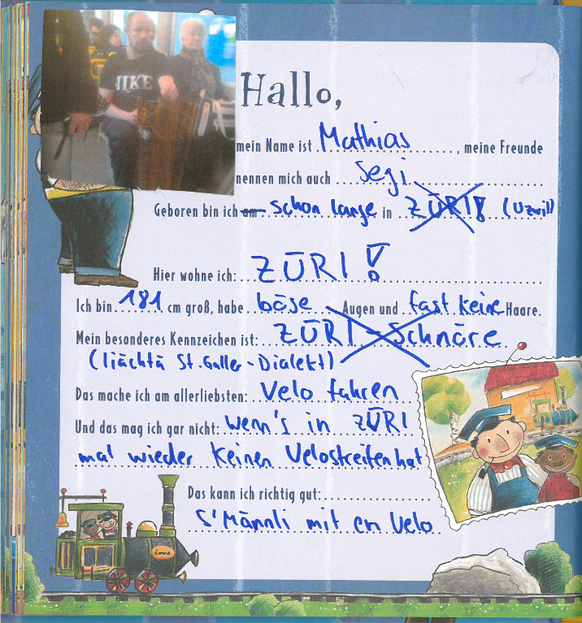 NIKE
Hallo,
mein Name ist Mathias, meine Freunde
nennen mich auch Segi
Geboren bin ich am schon lange in ZÜRI! (Uzwil)
Hier wohne ich: ZÜRI!
Ich bin 181 cm groß, habe böse Augen und fast keine Haare.
Mein besonderes Kennzeichen ist: ZÜRI-Schnöre
(liächtä St. Galler-Dialekt)
Das mache ich am allerliebsten: Velo fahren
Und das mag ich gar nicht: wenn's in ZÜRI
mal wieder keinen Velostreifen hat
Das kann ich richtig gut:
S'Männli mit em Velo
Emma